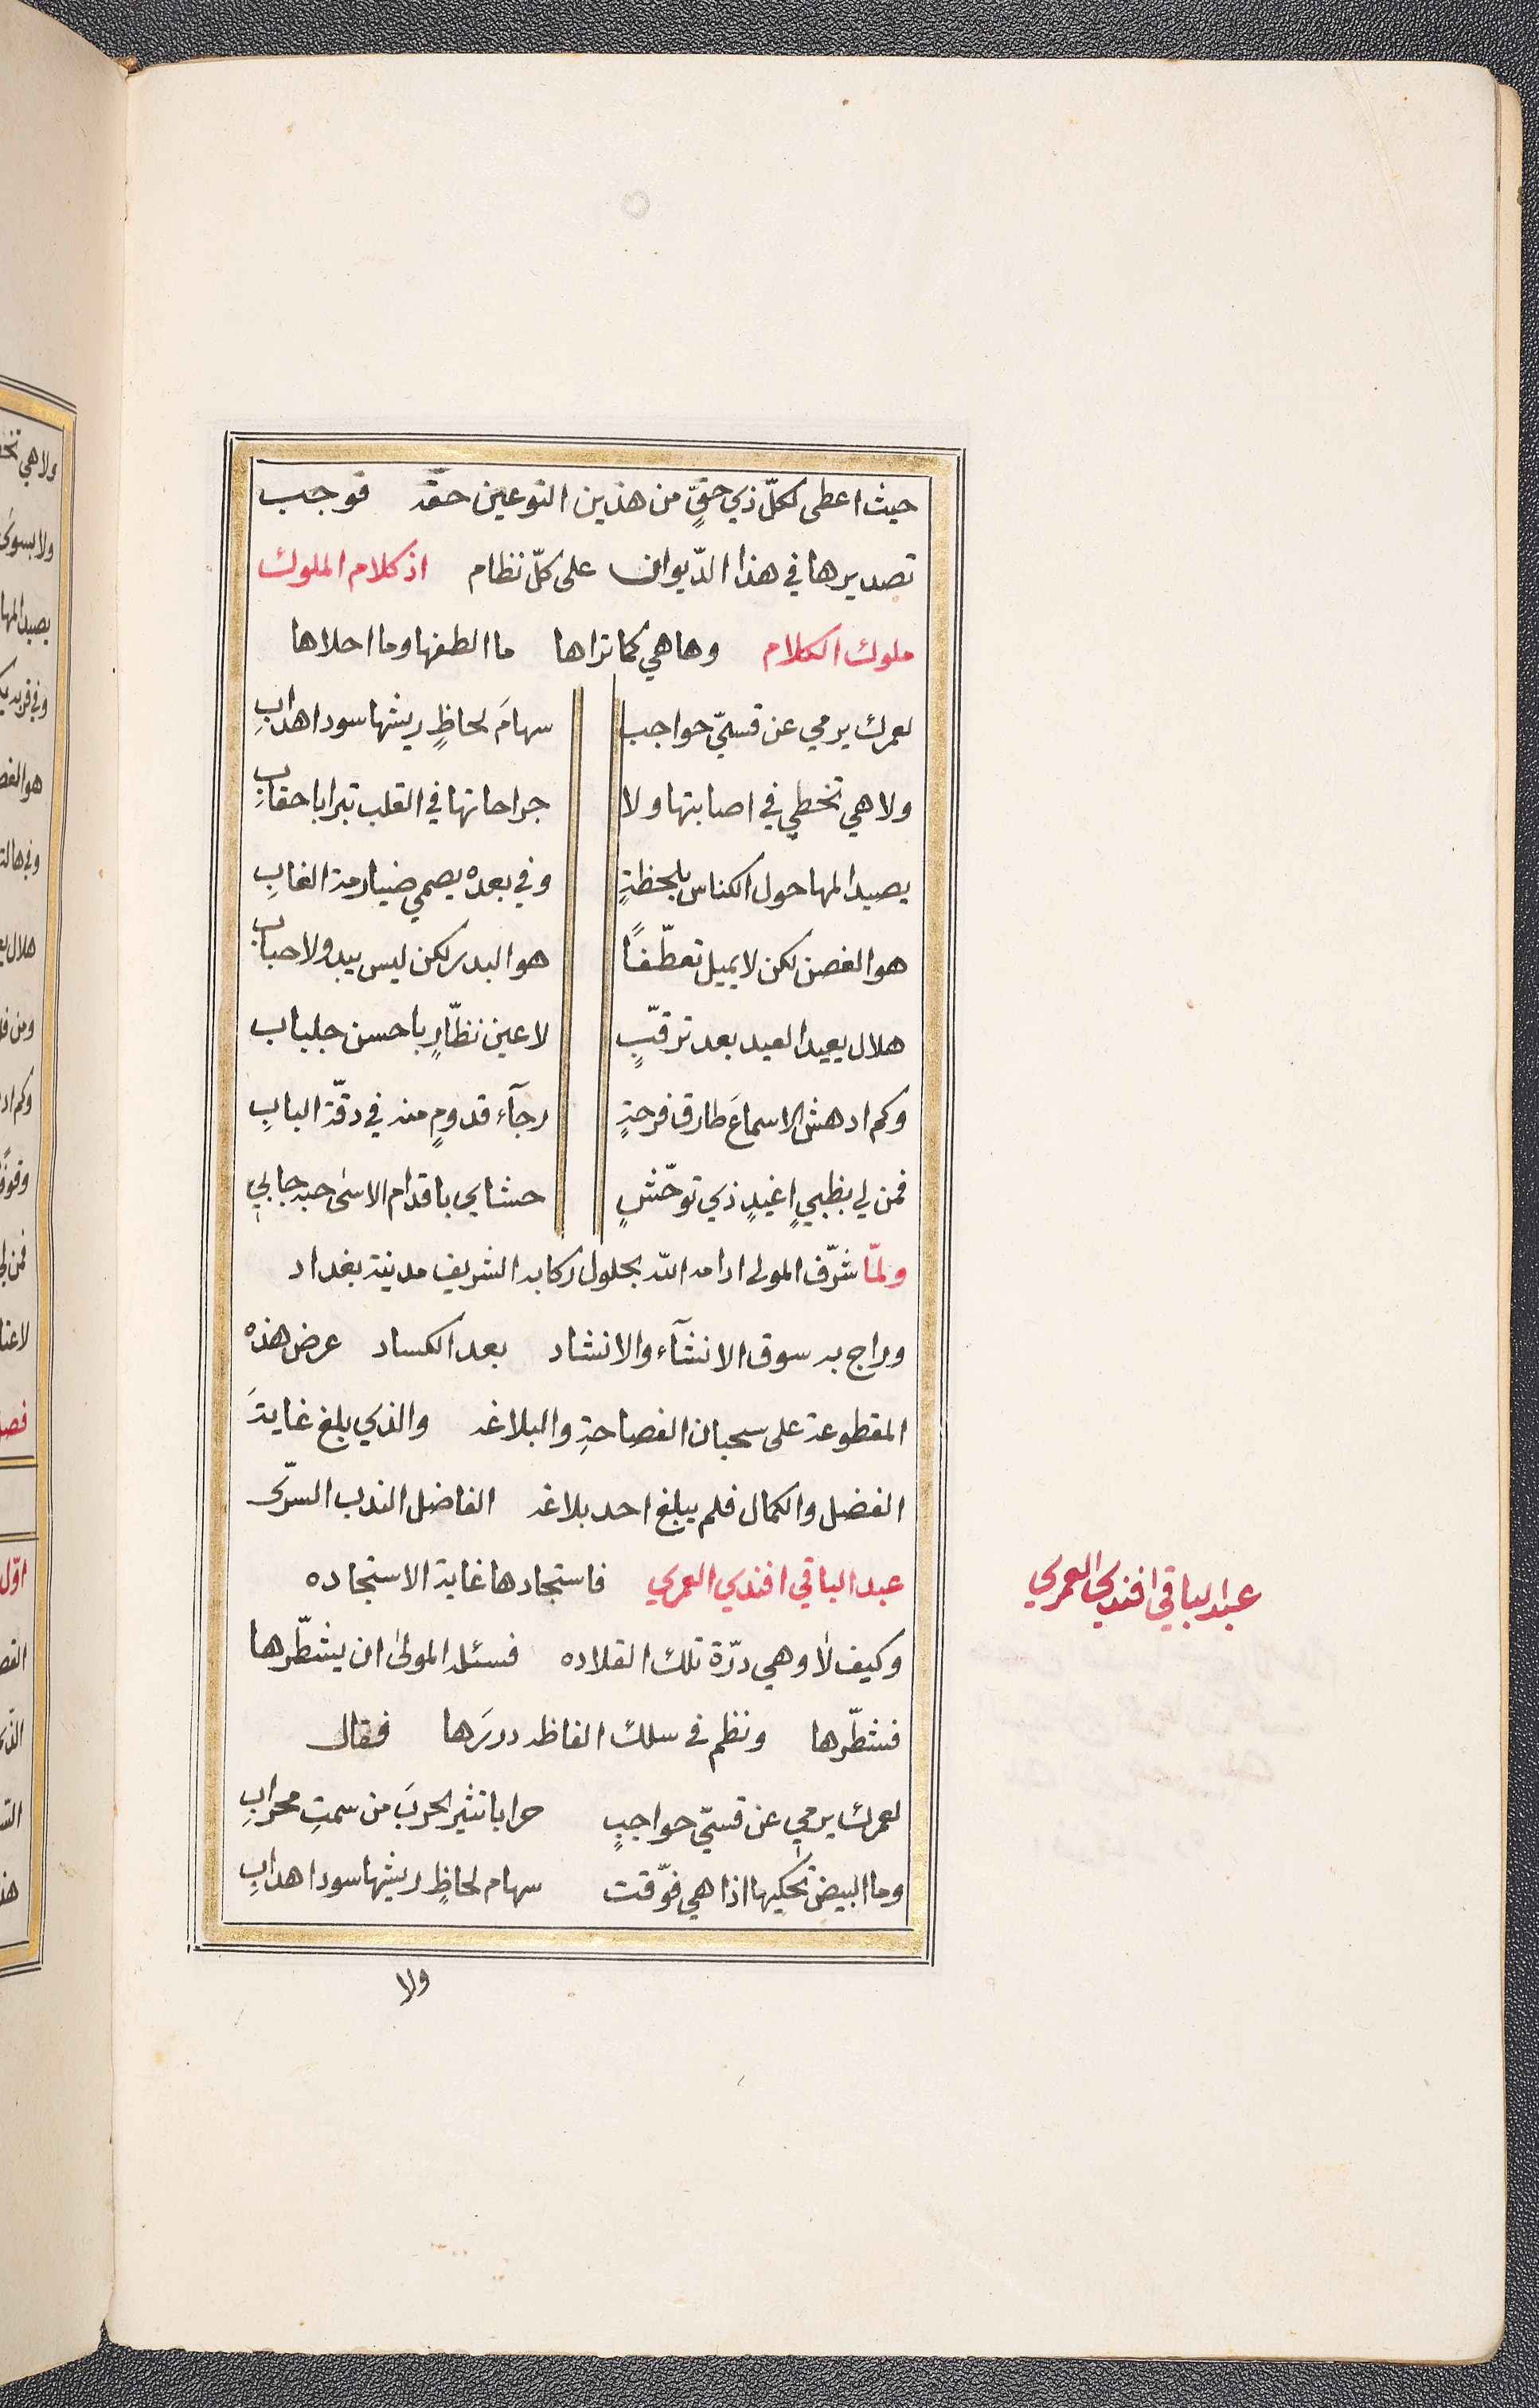 حيث اعطى لكلّ ذي حقٍّ من هذين النوعين حقّه فوجب
تصديرها في هذا الدّيوان على كلّ نظام اذ كلام الملوك
ملوك الكلام وها هي كما تراها ما الطفها وما احلاها
لعمرك يرمي عن قسيّ حواجب سهامَ لحاظٍ ريشها سود اهدابِ
ولا هي تخطي في اصابتها ولا جراحاتها في القلب تبرا باحقابِ
يصيد المها حول الكناس بلحظةٍ وفي بعده يصمي ضيارمة الغابِ
هو الغصن لكن لا يميل تعطّفًا هو البدر لكن ليس يبدو لاحبابِ
هلال يعيد العيد بعد ترقّبٍ لاعين نظّارٍ باحسن جلباب
وكم ادهش الاسماعَ طارق فرحةٍ رجآء قدومٍ منه في دقّة البابِ
فمن لي بظبيٍ اغيدٍ ذي توحّشٍ حشاي باقدام الاسى حبه جابي
ولمّا شرّف المولى ادامه الله بحلول ركابه الشريف مدينة بغداد
وراج به سوق الانشآء والانشاد بعد الكساد عرض هذه
المقطوعة على سحبان الفصاحةِ والبلاغه والذي بلغ غايةَ
الفضل والكمال فلم يبلغ احد بلاغه الفاضل الندب السرّى
عبد الباقي افندي العمري فاستجادها غاية الاستجاده
عبد الباقي افندي العمري
وكيف لا وهي درّة تلك القلاده فسئله المولى ان يشطّرها
فشطّرها ونظم في سلك الفاظه دررَها فقال
لعمرك يرمي عن قسيّ حواجبٍ حرابا تثير الحربَ من سمتِ محرابِ
وما البيض تحكيها اذا هي فوّقت سهام لحاظٍ ريشها سود اهدابِ
ولا